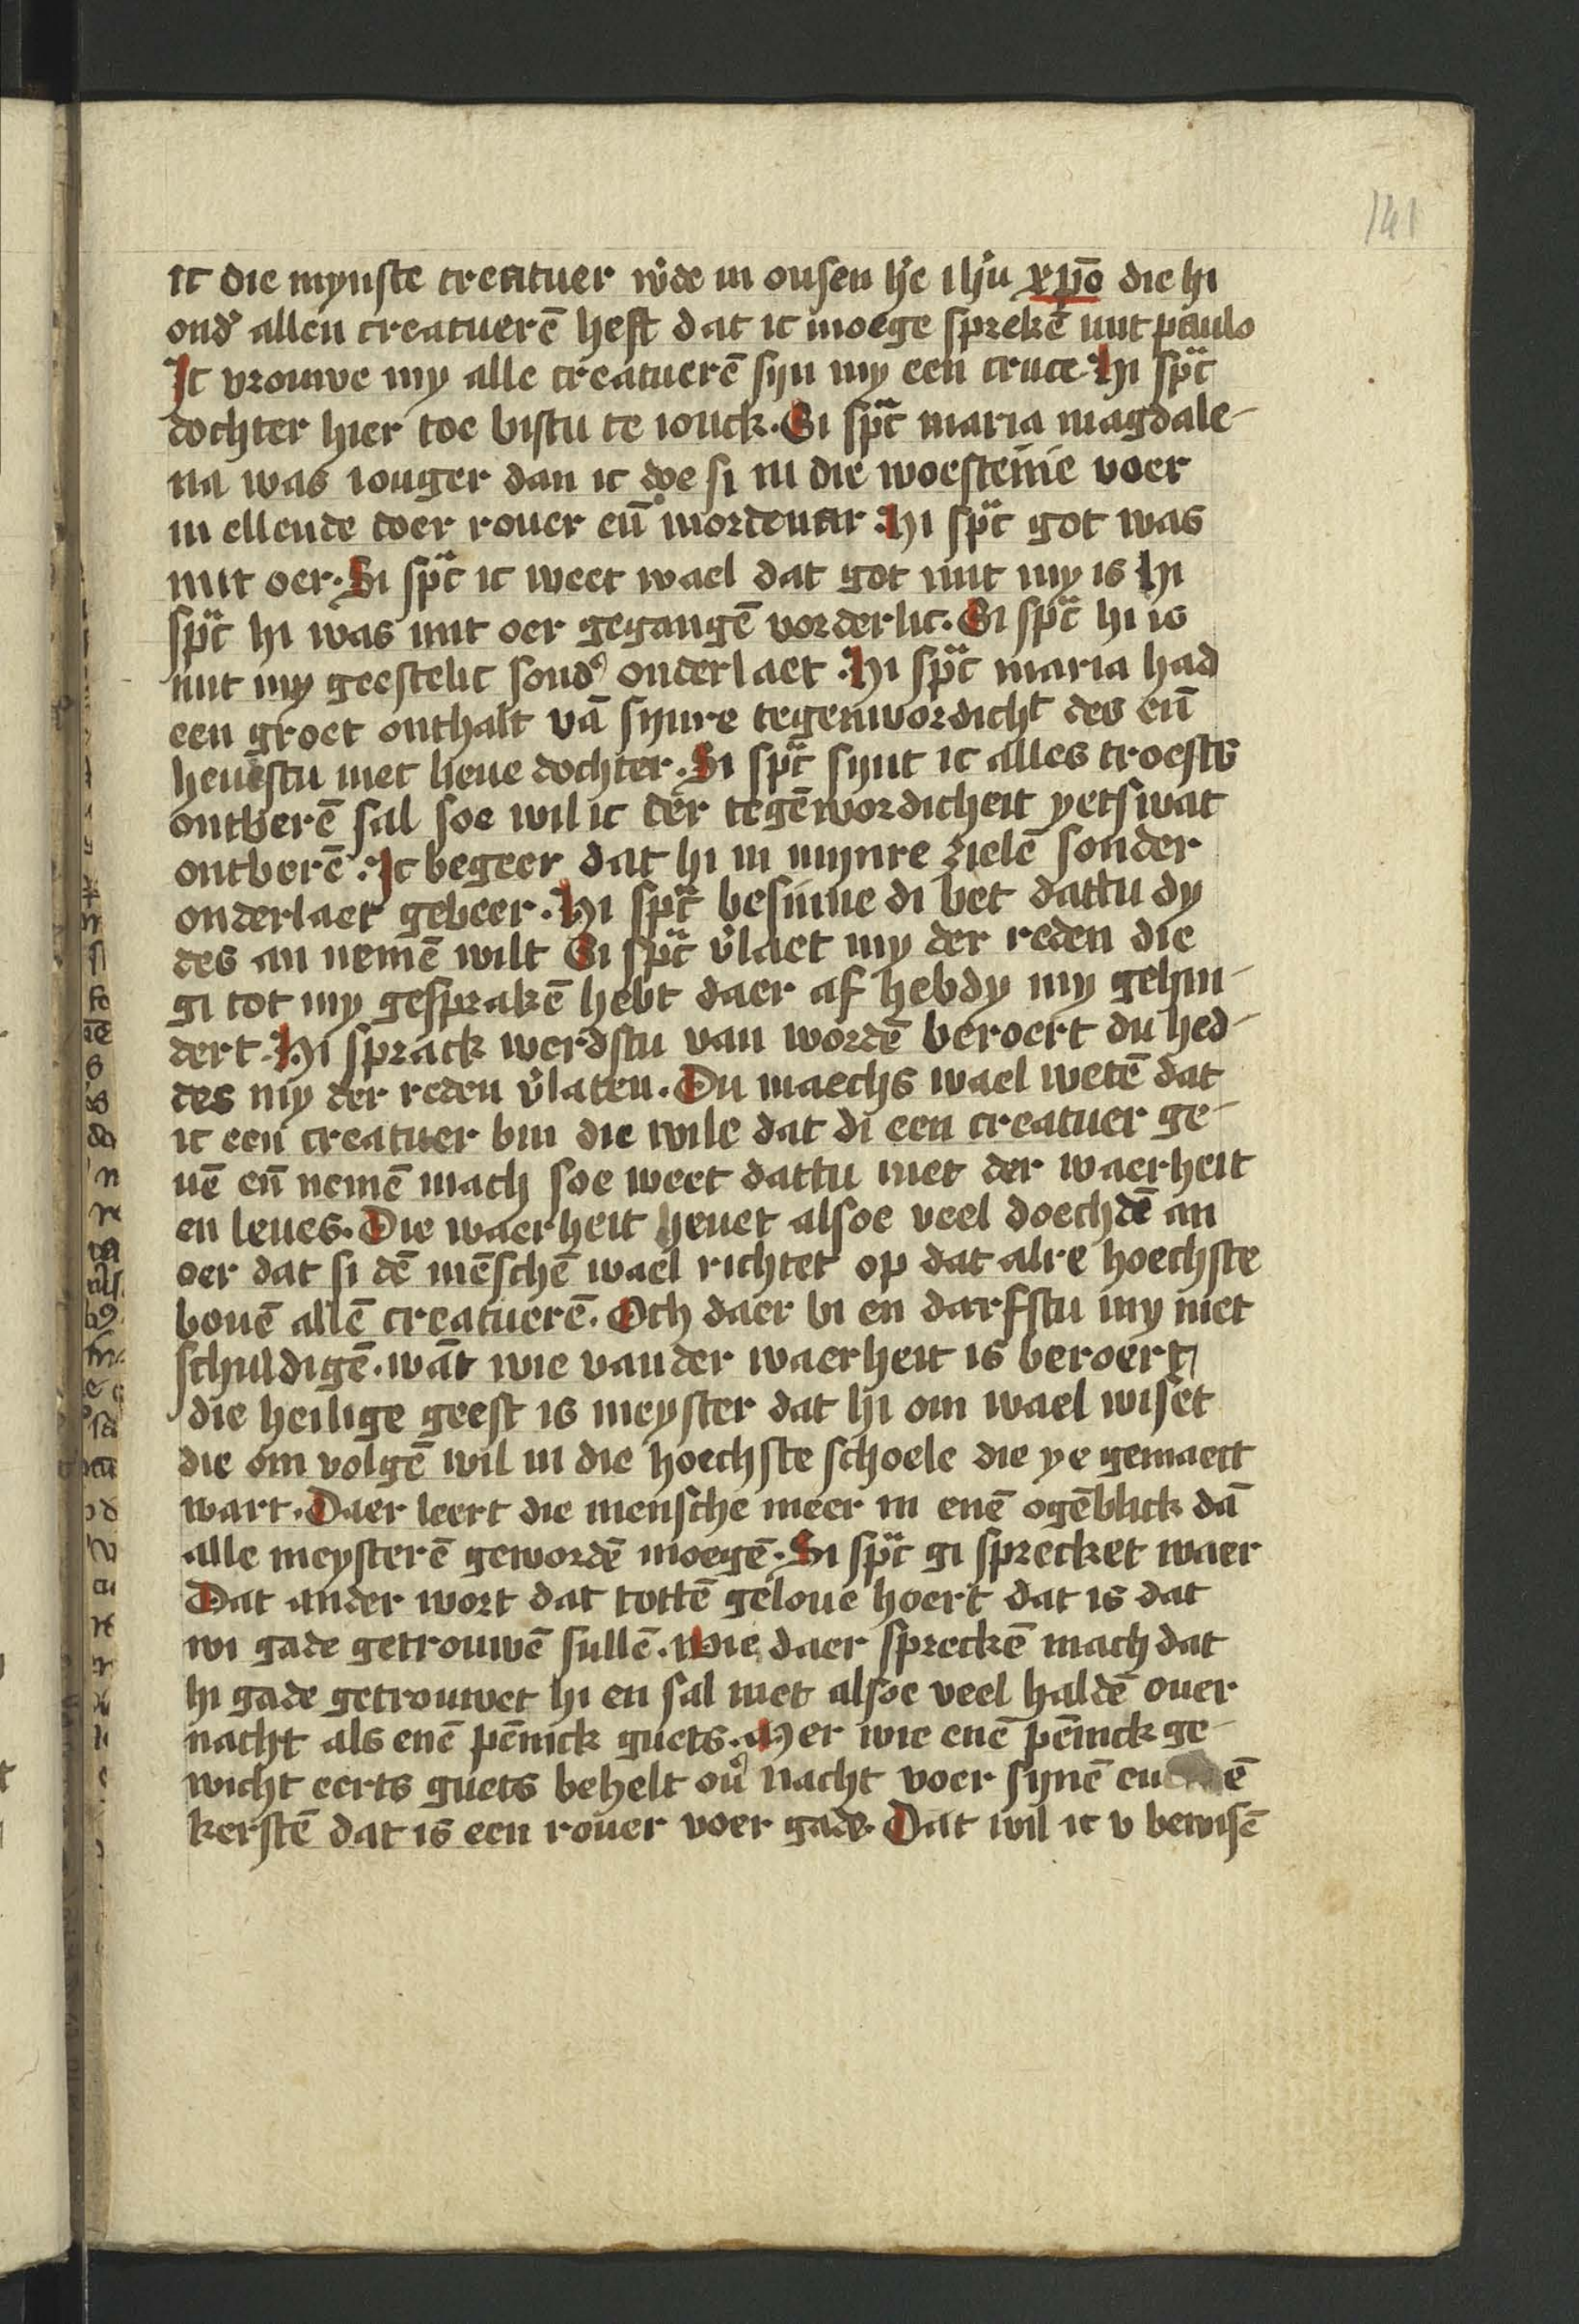 141
ic die mynste creatuer w͛de in onsen h͛e ihu xpo̅ die hi
ond͛ allen creatuere̅ heft dat ic moege spreke̅ mit paulo
Ic vrouwe my alle creatuere̅ sijn my een cruce. Hi spͣc
dochter hier toe bistu te ionck. Si spͣc maria magdale-
na was ionger dan ic doe si in die woestenie voer
in ellende doer rouer en̅ mordenar. Hi spͣc got was
mit oer. Si spͣc ic weet wael dat got mit my is Hi
spͣc hi was mit oer gegange̅ vorderlic. Si spͣc hi is
mit my geestelic sond͛ onderlaet. Hi spͣc maria had
een groet onthalt va̅ synre tegenwordicht des en̅
heuestu niet lieue dochter. Si spͣc synt ic alles troests
ontbere̅ sal soe wil ic der tege̅wordicheit yetswat
ontbere̅. Ic begeer dat hi in mynre ziele̅ sonder
onderlaet gebeer. Hi spͣc besinne di bet dattu dy
des an neme̅ wilt Si spͣc v͛laet my der reden die
gi tot my gesprake̅ hebt daer af hebdy my gehin-
dert. Hi sprack werdstu van worde̅ beroert du hed-
des my der reden v͛laten. Du maechs wael wete̅ dat
ic een creatuer bin die wile dat di een creatuer ge-
ue̅ en̅ neme̅ mach soe weet dattu niet der waerheit
en leues. Die waerheit heuet alsoe veel doechde̅ an
oer dat si de̅ me̅sche̅ wael richtet op dat alre hoechste
boue̅ alle̅ creatuere̅. Och daer bi en darfstu my niet
schuldige̅. wa̅t wie van der waerheit is beroert
die heilige geest is meyster dat hi om wael wiset
die om volge̅ wil in die hoechste schoele die ye gemaect
wart. Daer leert die mensche meer in ene̅ oge̅blick da̅
alle meystere̅ geworde̅ moege̅. Si spͣc gi sprecket waer
Dat ander wort dat totte̅ geloue hoert dat is dat
wi gade getrouwe̅ sulle̅. Wie daer sprecke̅ mach dat
hi gade getrouwet hi en sal niet alsoe veel halde̅ ouer
nacht als ene̅ pe̅nick guets. Mer wie ene̅ pe̅nick ge-
wicht eerts guets behelt ou͛ nacht voer syne̅
kerste̅ dat is een rouer voer gade. Dat wil ic v bewise̅